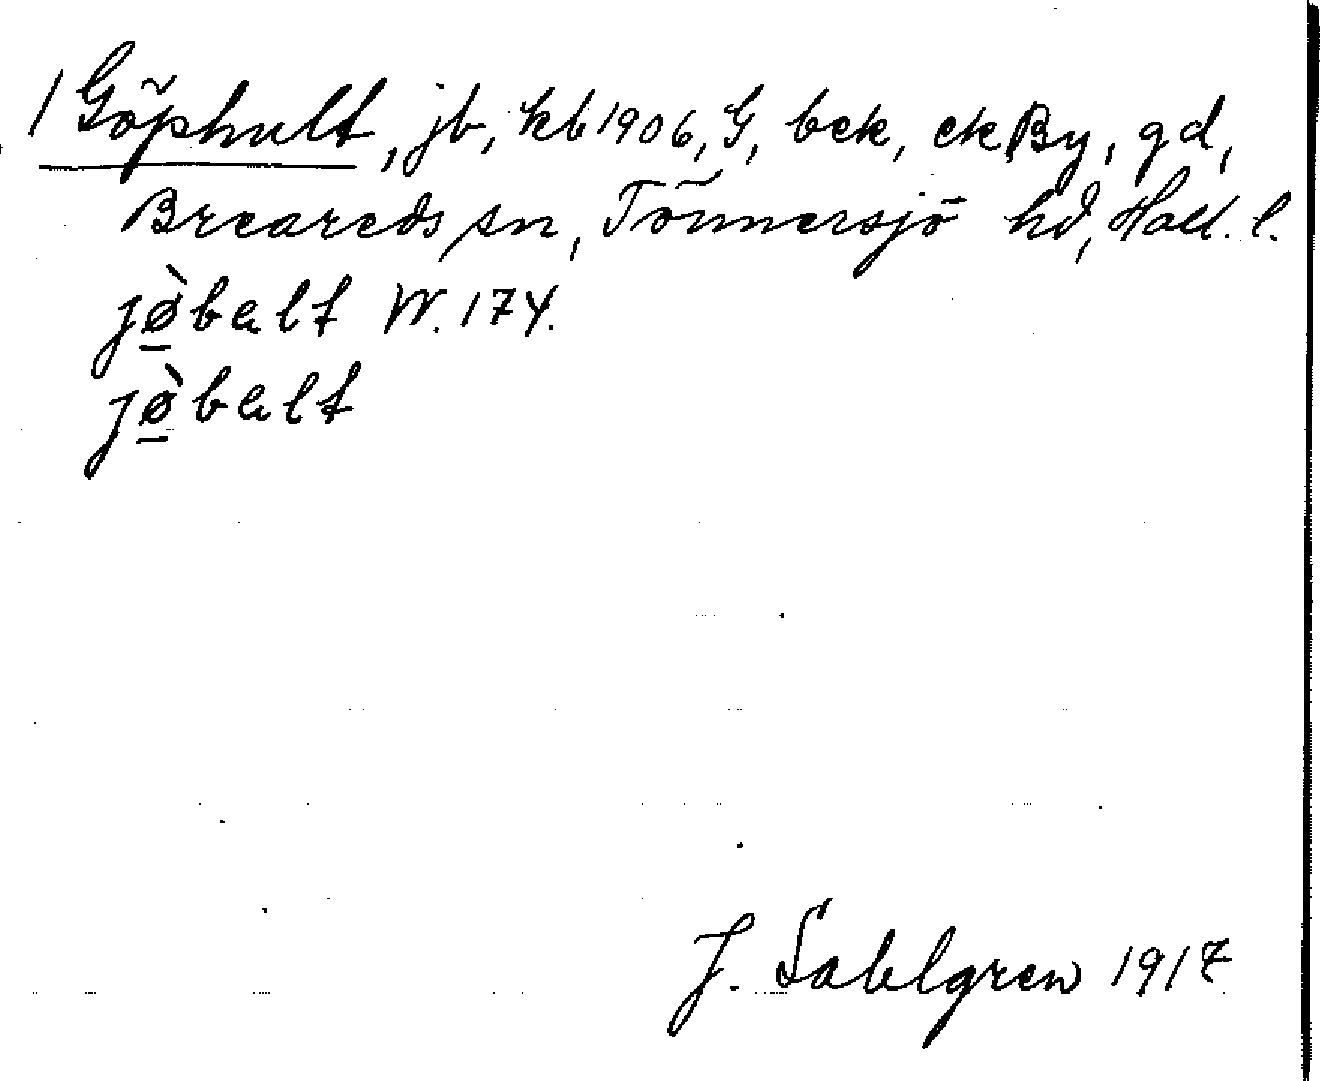 1 Göphult, jb, kb 1906, G, bek, ek By, gd,
Breareds sn, Tönnersjö hd, Hall. l.
jø̱̀balt W. 174.
jø̱̀balt
J. Sahlgren 1917